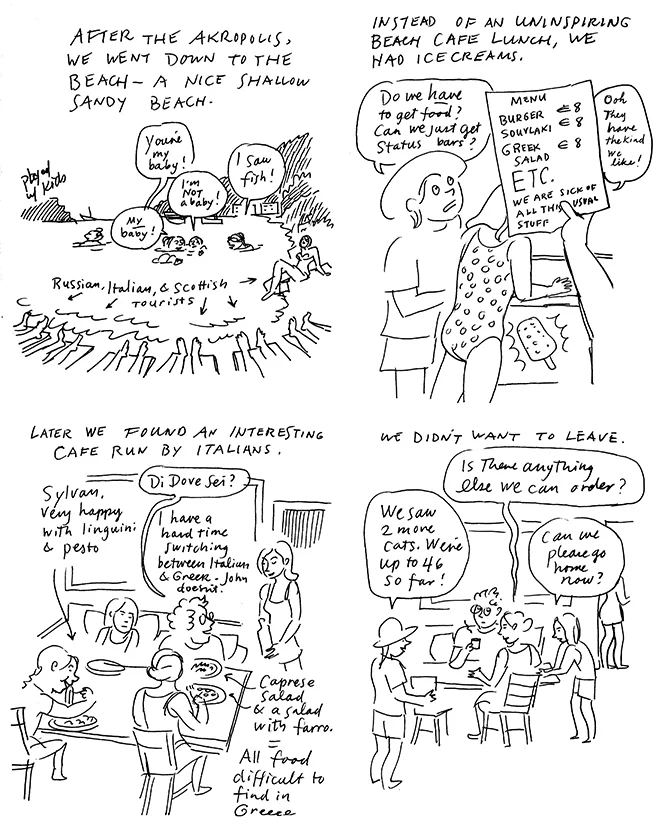 AFTER THE AKROPOLIS,
WE WENT DOWN TO THE
BEACH – A NICE SHALLOW
SANDY BEACH.
You're
my
baby!
I'm
NOT
a baby!
I saw
fish!
My
baby!
played
w/ kids
Russian, Italian, & Scottish
tourists
INSTEAD OF AN UNINSPIRING
BEACH CAFE LUNCH, WE
HAD ICECREAMS.
Do we have
to get food?
Can we just get
status bars?
MENU
BURGER € 8
SOUVLAKI € 8
GREEK € 8
SALAD
ETC.
WE ARE SICK OF
ALL THIS USUAL
STUFF
Ooh
They
have
the kind
we
like!
LATER WE FOUND AN INTERESTING
CAFE RUN BY ITALIANS.
Sylvan,
very happy
with linguini
& pesto
Di Dove Sei?
I have a
hard time
switching
between Italian
& Greek - John
doesn't.
Caprese
salad
& a salad
with farro.
=
All food
difficult to
find in
Greece
WE DIDN'T WANT TO LEAVE.
Is there anything
else we can order?
We saw
2 more
cats. We're
up to 46
so far!
Can we
please go
home
now?